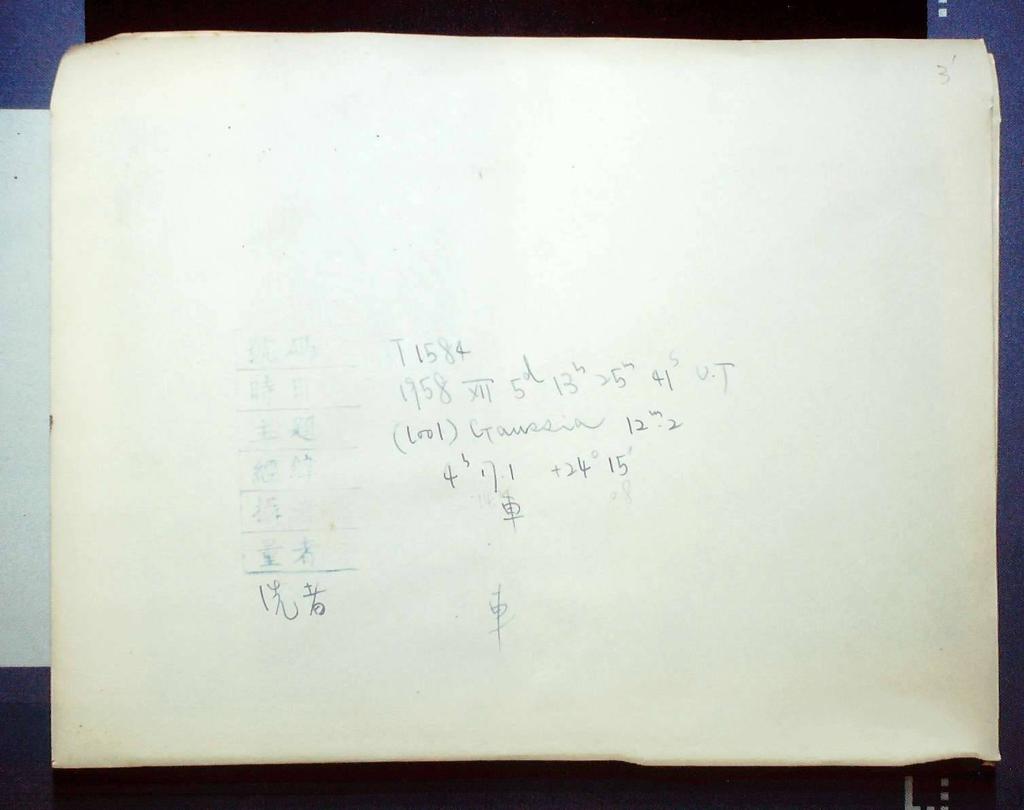 3'
號碼 T1584
時日 1958 XII 5d 13h 25m 41s U.T
主題 (1001) Gaussia 12m.2
4h 17.1 +24° 15'
08
車
量者
洗者 車